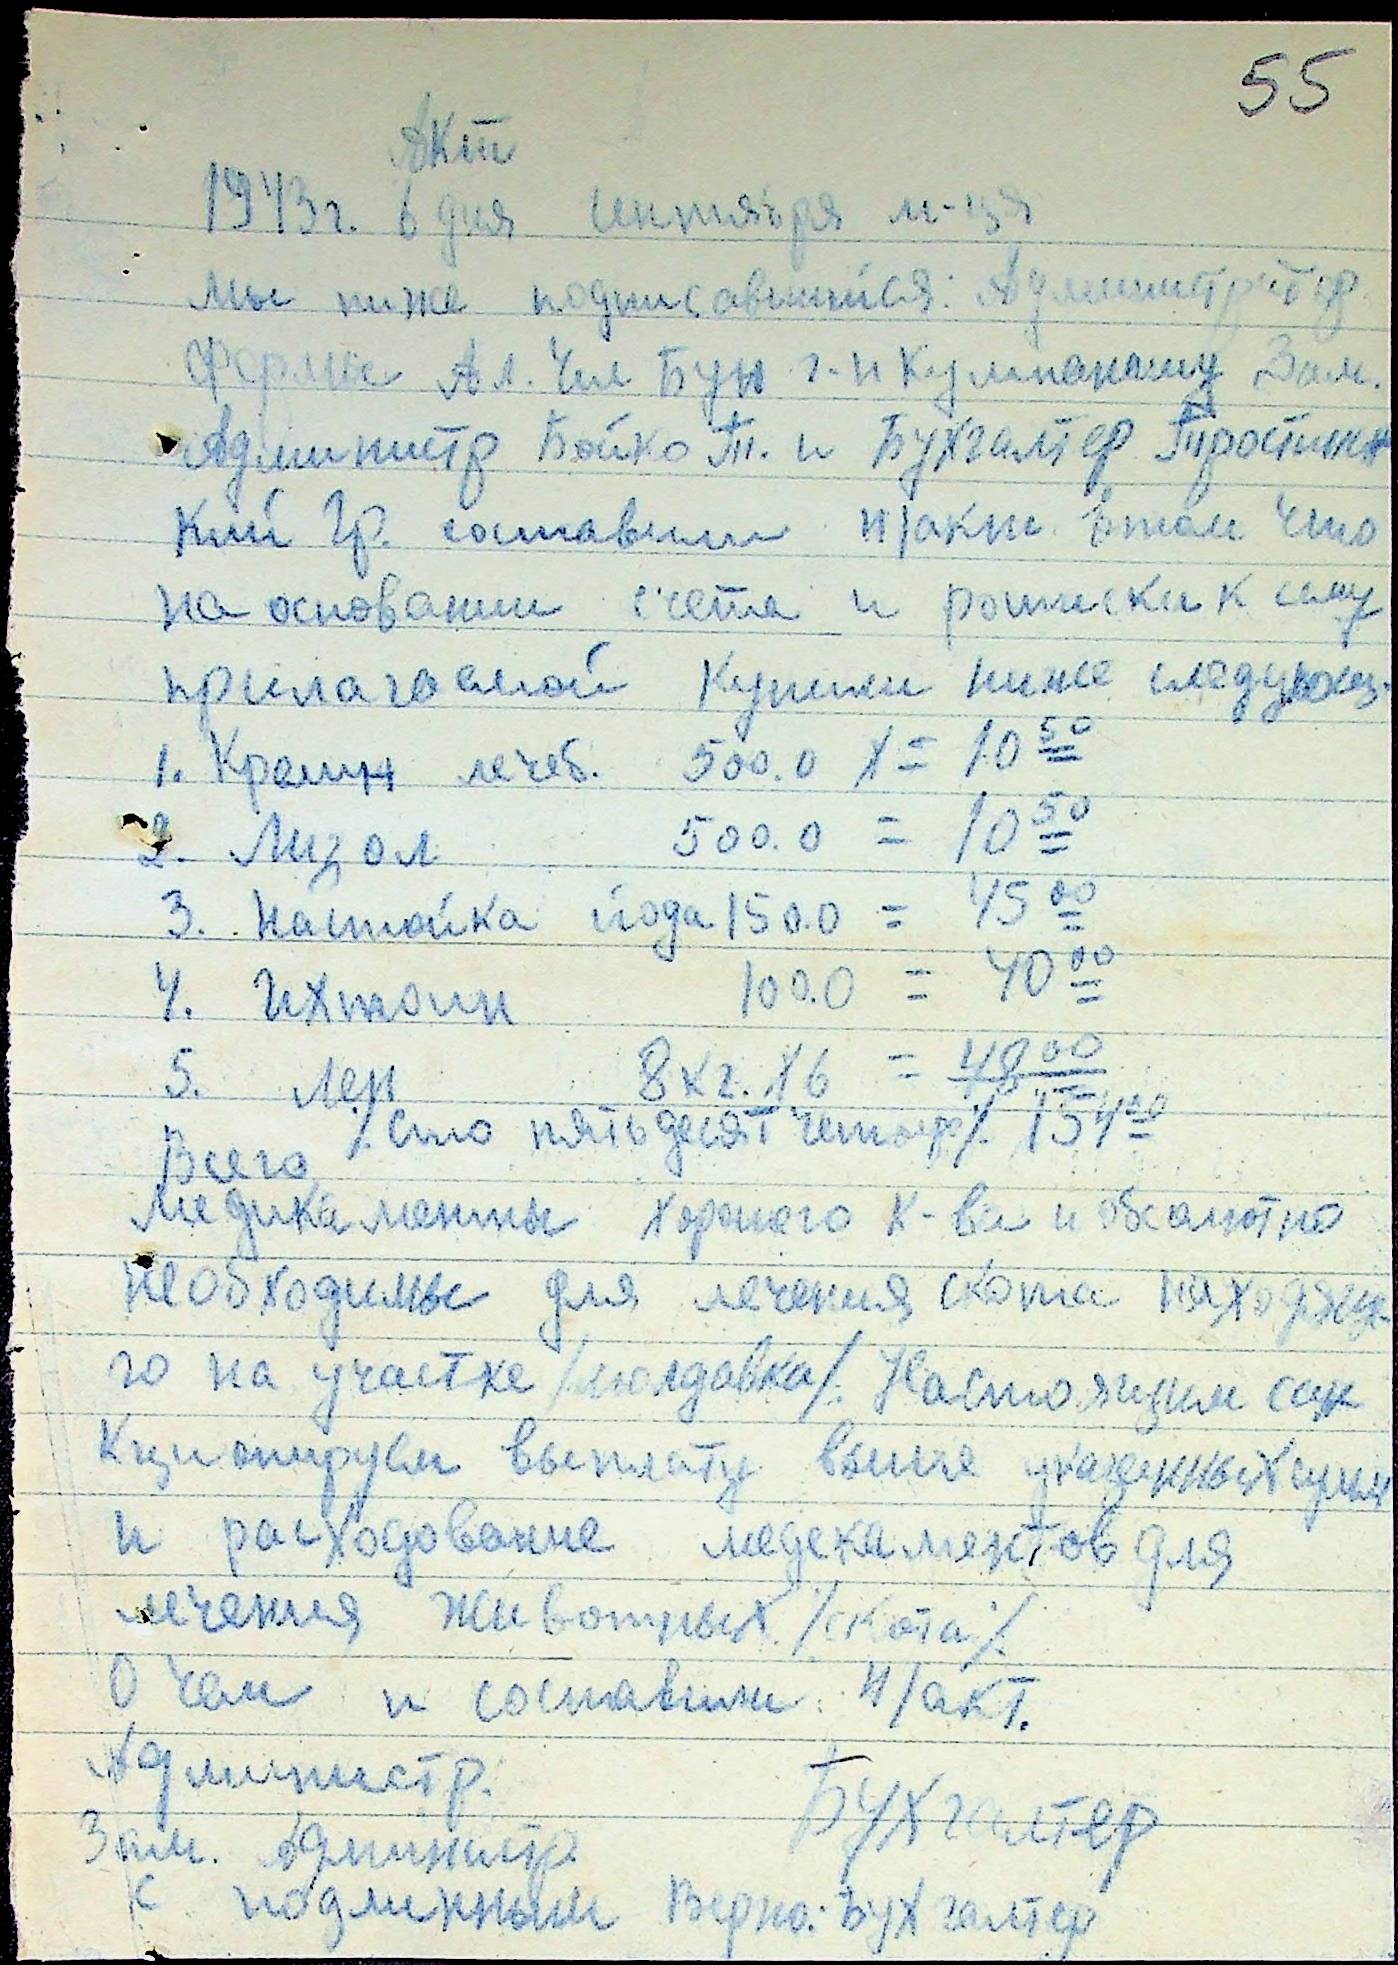 55
Акт
1943г. 6 дня сентября м-ця
Мы ниже подписавшийся: Администратор
Фермы Ал. Чел Бун г-н Кулманошу Зам.
Администр Бойко Т. и Бухгалтер Тростинec
кий Гр. составили н/акт втом что
на основании счета и росписки к сему
прилагаемой Купили ниже следующ.
1. Креолин лечеб. 500.0 х = 10 50
2. Лизол 500.0 = 10 50
3. Настойка йода 150.0 = 45 00
4. Ихтиол 100.0 = 40 00
5. Лен 8 кг. х 6 = 48 00
Всего /.Сто пятьдесят четыре/. 154 00
Медикаменты хорошего к-ва и обсолютно
необходимы для лечения скота находяще-
го на участке /молдавка/. Настоящим сан
кционируем выплату выше указанных сумм
и расходование медекаментов для
лечения животных /скота/.
О чем и составили н/акт.
Администр.
Бухгалтер
Зам. Администр.
С подлинным Верно: Бухгалтер